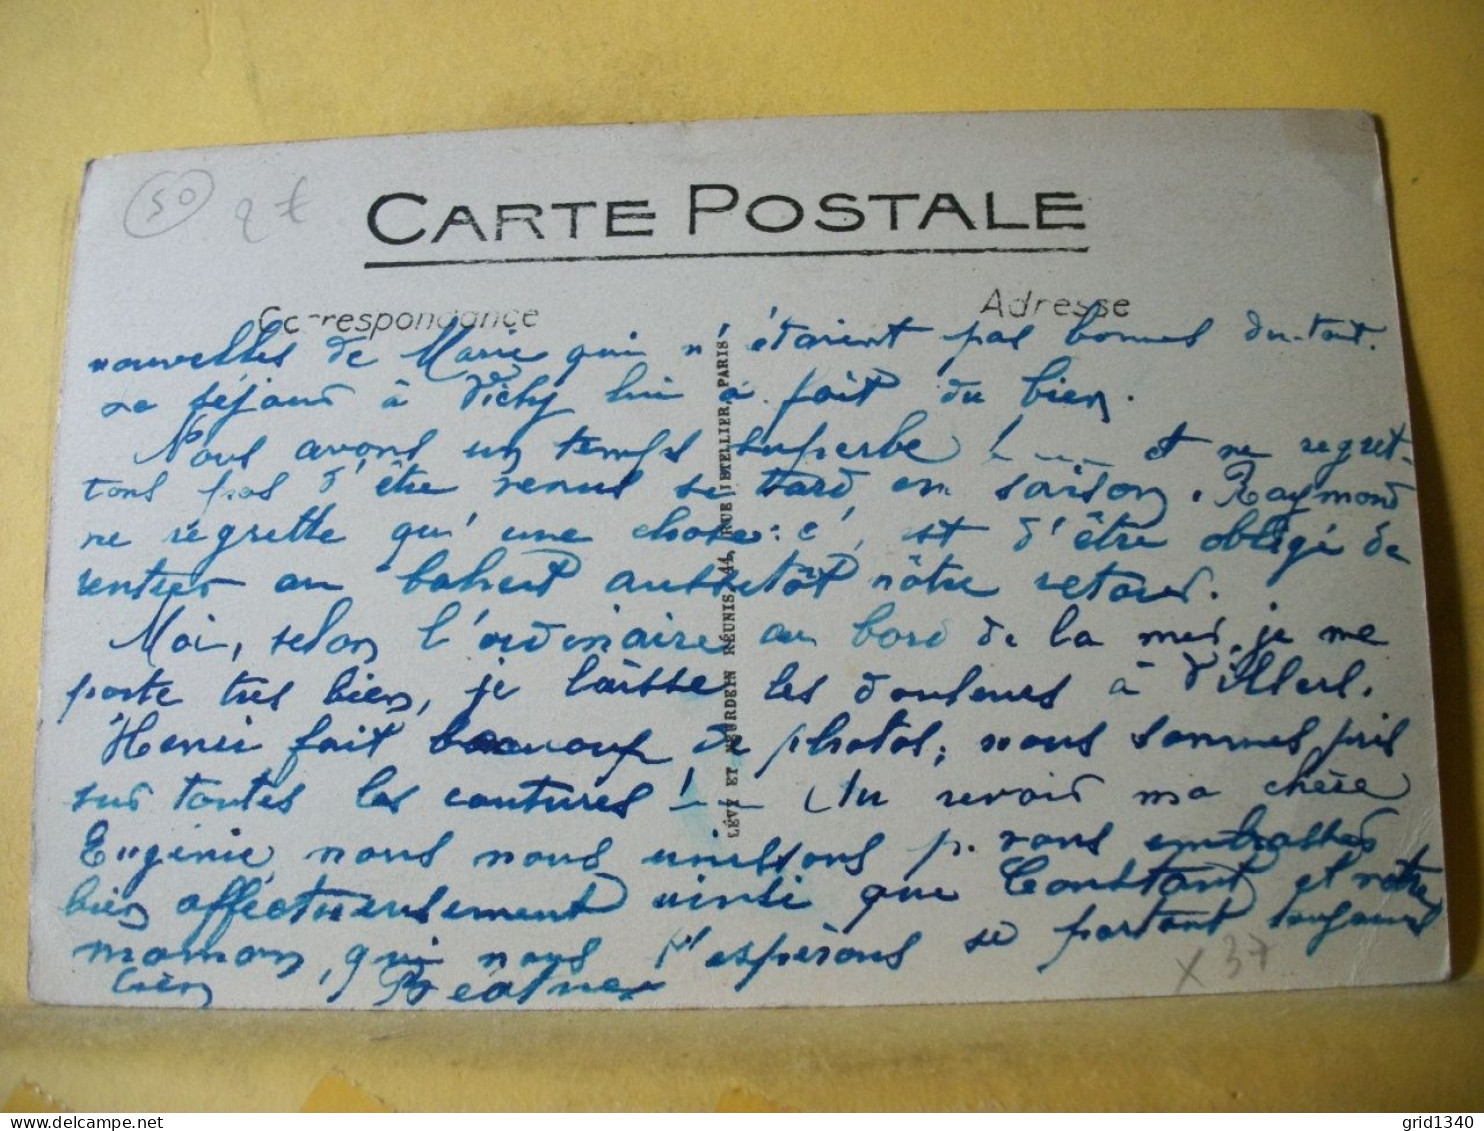 50 2 €
CARTE POSTALE
Correspondance Adresse
nouvelles de Marie qui n'étaient pas bonnes du-tout.
Le séjour à Vichy lui a fait du bien.
Nous avons un temps superbe ! ... et ne regret-
tons pas d'être venus si tard en saison. Raymond
ne regrette qu'une chose : c'est d'être obligé de
rentrer au bahut aussitôt nôtre retour.
Moi, selon l'ordinaire au bord de la mer, je me
porte très bien, je laisse les douleurs à Villers.
Henri fait beaucoup de photos, nous sommes pris
sur toutes les coutures ! ... Au revoir ma chère
Eugénie, nous nous unissons p. vous embrasser
bien affectueusement ainsi que Constant et nôtre
maman, qui nous l'espérons se portant toujours
bien Béatrice
X 37
LÉVY ET NEURDEIN RÉUNIS, 44, RUE LETELLIER, PARIS
grid1340